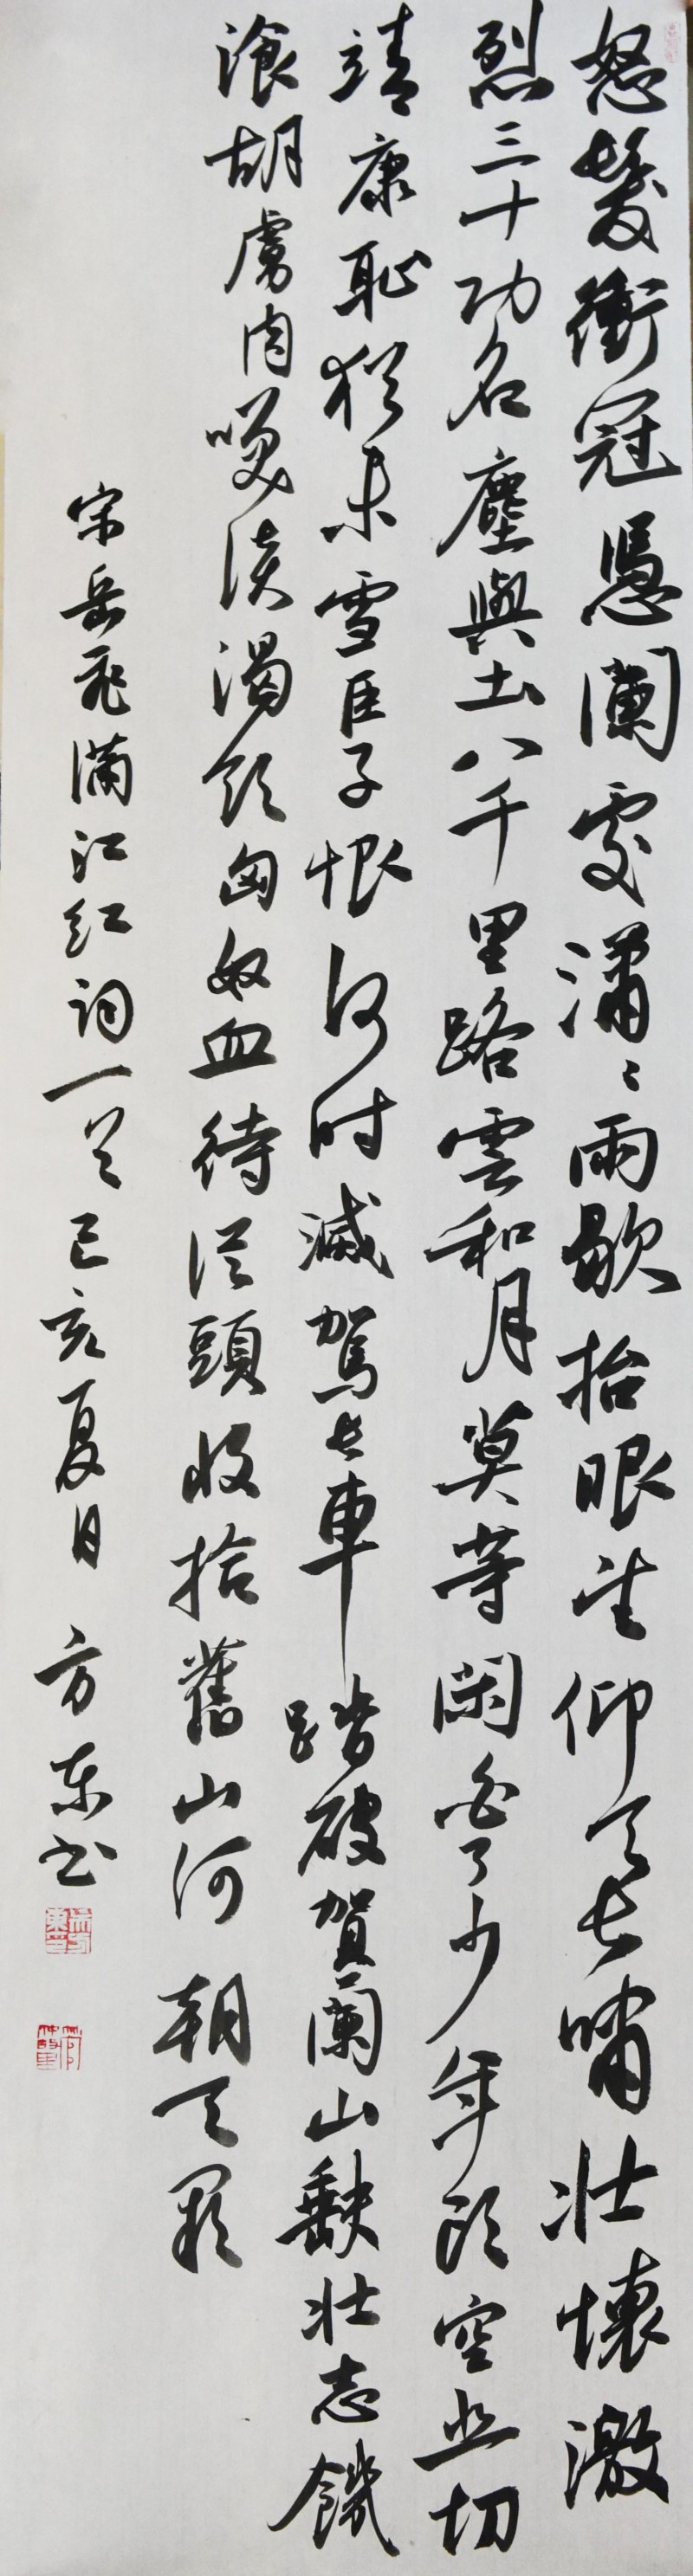 怒髮衝冠憑闌處瀟〻雨歇抬眼望仰天長嘯壯懷激
烈三十功名塵與土八千里路雲和月莫等閑白了少年頭空悲切
靖康恥猶未雪臣子恨何时滅駕長車踏破賀蘭山缺壯志饑
湌胡虜肉咲談渴飲匈奴血待從頭收拾舊山河朝天闕
宋岳飛滿江紅詞一首己亥夏日方东书